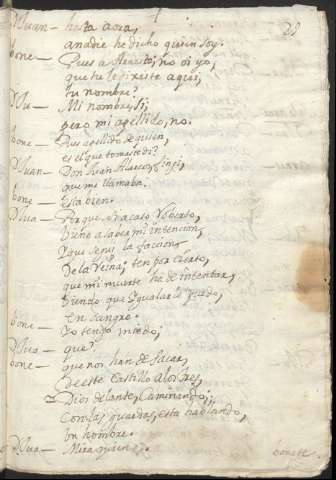 29
Juan — hasta aora,
anadie he dicho quien soy.
bone — Pues a Alexesto, no oi yo,
que tu le dixeste aqui,
tu nombre?
Jua — Mi nombre, si;
pero mi apellido, no.
bone — Pues apellido de quien,
es el que tomaste di?
Juan — Don Juan Alarcos, fingi,
que me llamaba.
bone — Esta bien.
Jua — Porque si acaso Roberto,
viene a saber mi intencion,
y que segui la faccion
de la Reina; ten por cierto,
que mi muerte ha de intentar,
viendo que ygualarle puedo,
en sangre.
bone — Yo tengo miedo;
Jua — que?
bone — que nos han de sacar,
de este Castillo
Dios delante, Caminando;
Con las guardas, esta hablando,
un hombre.
Jua — Mira quien es.
bonete